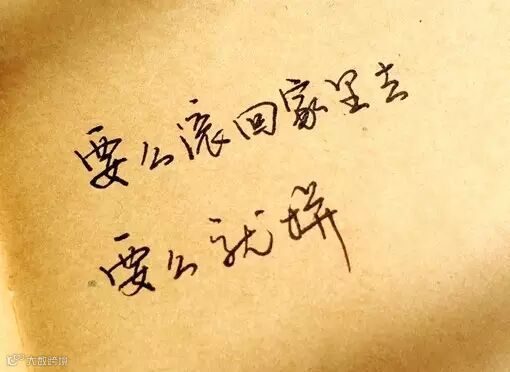 要么滚回家里去
要么就拼
大数跨境